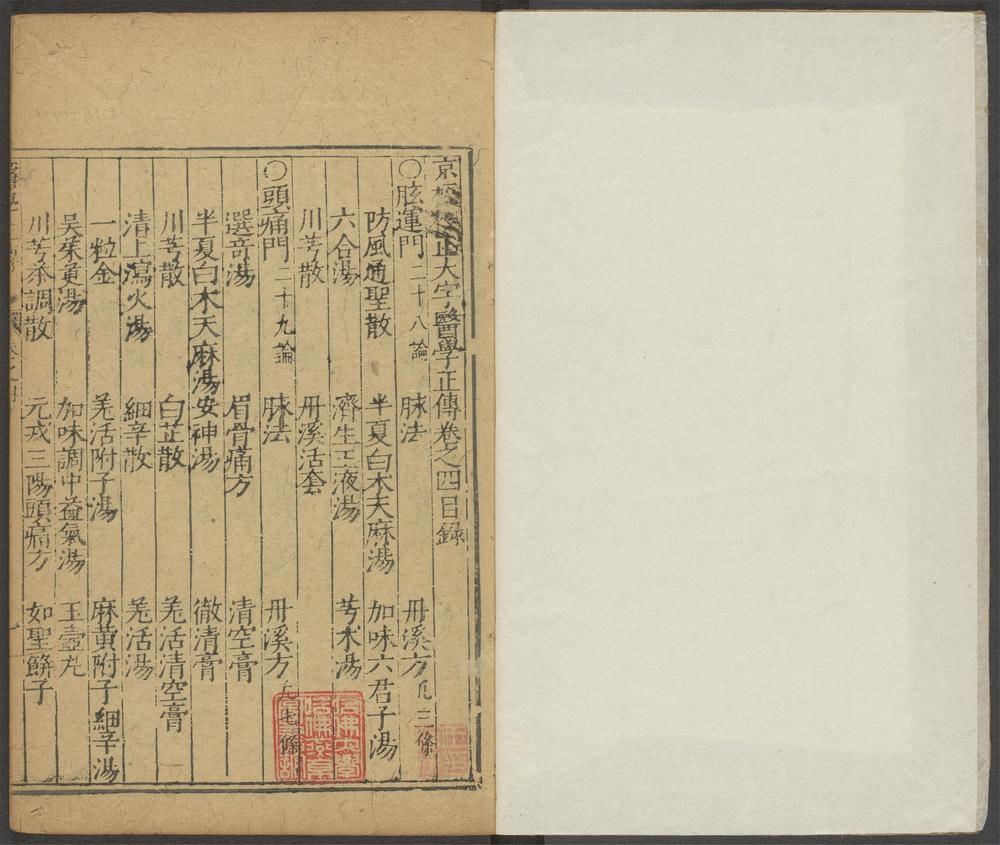 京板校正大字醫學正傳卷之四目錄
〇眩運門 二十八論 脉法 丹溪方 凡三條
防風通聖散 半夏白术天麻湯 加味六君子湯
六合湯 濟生玉液湯 芎术湯
川芎散 丹溪活套
〇頭痛門 二十九論 脉法 丹溪方 凡七條
選奇湯 眉骨痛方 清空膏
半夏白术天麻湯 安神湯 徹清膏
川芎散 白芷散 羌活清空膏
清上瀉火湯 細辛散 羌活湯
一粒金 羌活附子湯 麻黄附子細辛湯
吳茱萸湯 加味調中益氣湯 玉壺丸
川芎茶調散 元戎三陽頭痛方 如聖餅子
醫學正傳 卷之四